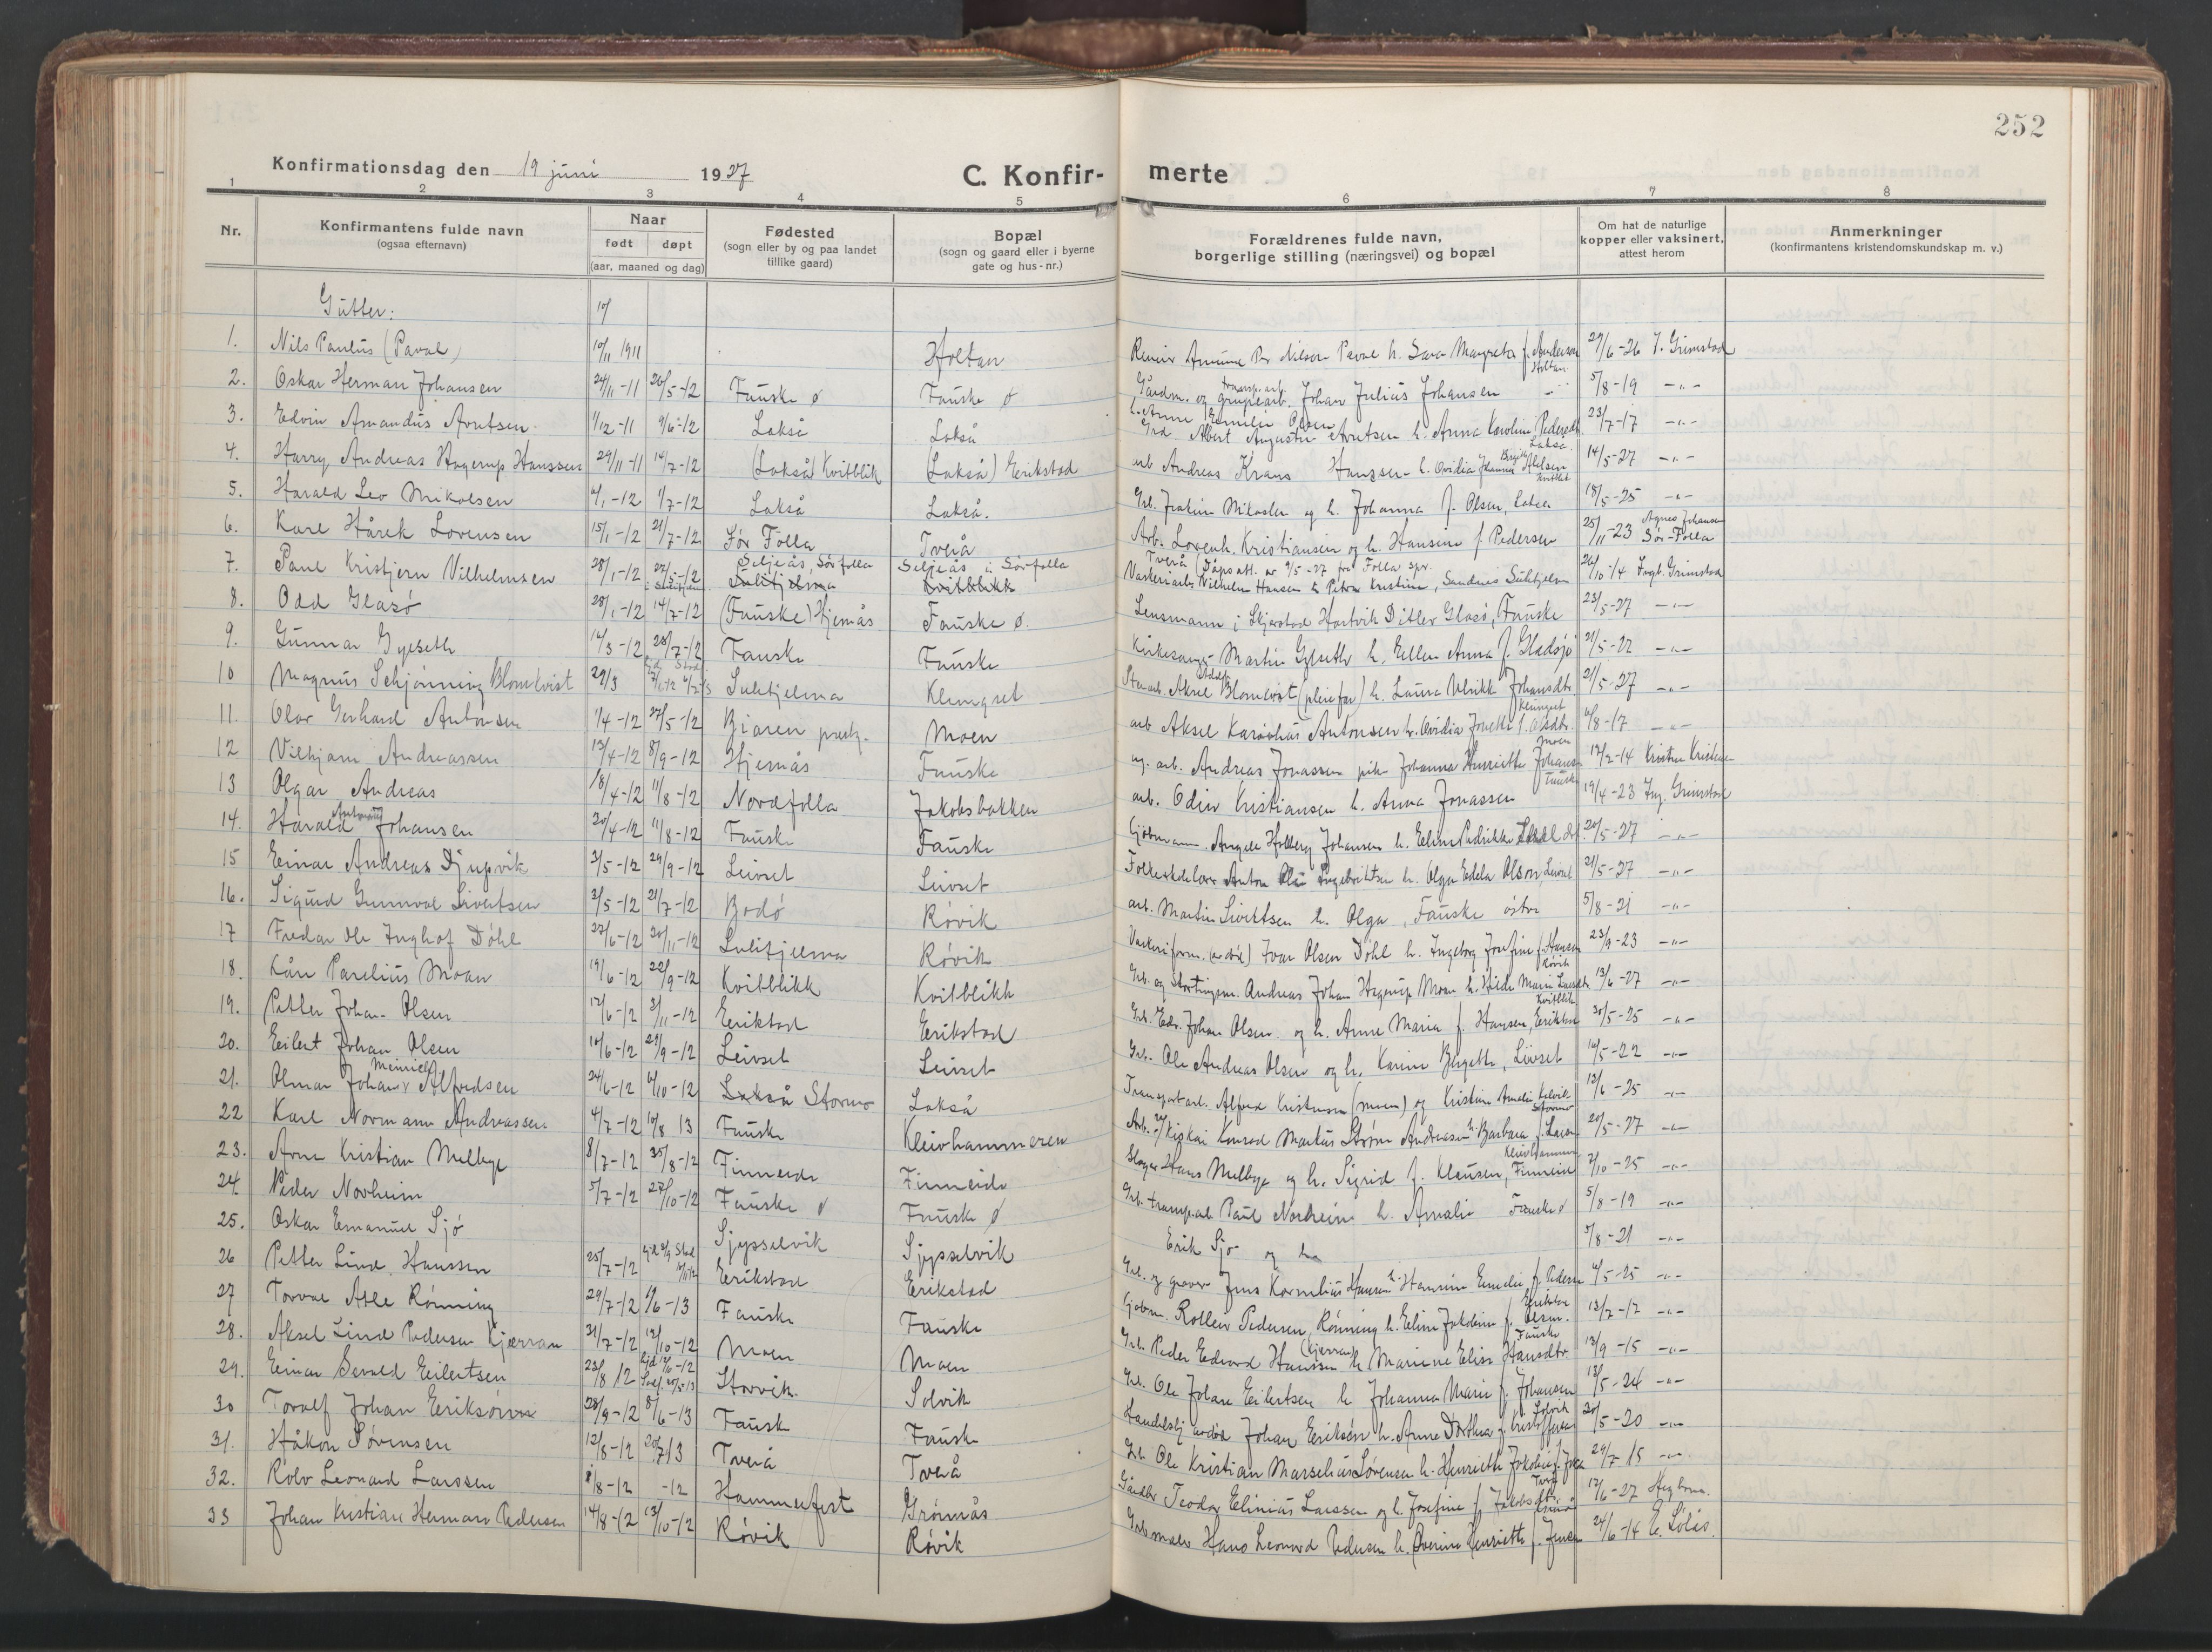 252
Konfirmationsdag den 19 juni 1927
C. Konfir-merte
1 2 3 4 5 6 7 8
Nr.
Konfirmantens fulde navn
(ogsaa efternavn)
Naar
født døpt
(aar, maaned og dag)
Fødested
(sogn eller by og paa landet
tillike gaard)
Bopæl
(sogn og gaard eller i byerne
gate og hus-nr.)
Forældrenes fulde navn,
borgerlige stilling (næringsvei) og bopæl
Om hat de naturlige
kopper eller vaksinert,
attest herom
Anmerkninger
(konfirmantens kristendomskundskap m. v.)
Gutter: 10/
1. Nils Paulus (Paval) 10/11 1911 Holtan Nilsen Paval h. Sara Margreta f. Andersen Holtan 29/6-26 J. Grimstad
2. Oskar Herman Johansen 24/11-11 26/5-12 Fauske ø Fauske ø Gårdm. og transp.arb. Johan Julius Johansen h. Anne Emilie Olsen 5/8-19 -"-
3. Edvin Amandus Arntsen 1/12-11 9/6-12 Lakså Lakså Albert August Arntsen h. Anna Karoline Pedersdt. Lakså 23/7-17 -"-
4. Harry Andreas Hagerup Hanssen 29/11-11 14/7-12 (Lakså) Kvitblik (Lakså) Erikstad arb Andreas Krans Hanssen h. Ovidia Johanna Kvitblik 14/5-27 -"-
5. Harald Leo Mikalsen 6/1-12 1/7-12 Lakså Lakså. Grb. Joakim Mikalsen og h. Johanna f. Olsen, Lakså 18/5-25 -"-
6. Karl Hårek Lorensen 15/1-12 21/7-12 Sør Folla Tverå Arb. Lorenh. Kristiansen og h. Hansine f Pedersen Tverå (Dåpsatt. av 9/5-27 fra Folla spr. 25/11-23 Agnes Johansen Sør-Folla
7. Paul Kristjern Vilhelmsen 28/1-12 Seljeås, Sørfolla Sulitjelma Seljeås i Sørfolla Kvitblikk Vaskeriarb. Vilhelm Hansen h Petra Kristine, Sandnes Sulitjelma 26/10-14 Ingb. Grimstad
8. Odd Glasø 28/1-12 14/7-12 (Fauske) Hjemås Fauske ø. Lensmann i Skjerstad Hartvik Ditlev Glasø, Fauske 23/5-27 -"-
9. Gunnar Gylseth 14/3-12 28/7-12 Fauske Fauske Kirkesanger Martin Gylseth h. Ellen Anna f. Gladsjø 21/5-22 -"-
10 Magnus Schjønning Blomkvist 29/3 Sulitjelma Klungset Aksel Blomkvist (pleiefar) h. Laura Ulrikke Johansdtr. Klungset 21/5-27 -"-
11. Olav Gerhard Antonsen 1/4-12 27/5-12 Beiaren prestg. Moen arb Aksel Karolius Antonsen h. Ovidia Moen 6/8-17 -"-
12 Vilhjam Andreassen 13/4-12 8/9-12 Hjemås Fauske ug. arb. Andreas Jonassen pike Johanna Henriette Johans Fauske 12/2-14
13 Olgar Andreas 18/4-12 11/8-12 Nordfolla Jakobsbakken arb. Odin Kristiansen h. Anna Jonassen 19/4-23 Ing. Grimstad
14. Harald Johansen 30/4-12 11/8-12 Fauske Fauske Holberg Johansen h. Eline Fredrikke 20/5-27 -"-
15 Einar Andreas Djupvik 3/5-12 29/9-12 Leivset Leivset Folkeskolelærer Anton Ingebriktsen h. Olga Edela Olson, Leivset 21/5-27 -"-
16. Sigurd Gunnval Sivertsen 3/5-12 21/7-12 Bodø Røvik arb. Martin Sivertsen h. Olga, Fauske østre 5/8-21 -"-
17 Fredar Ole Inghof Døhl 27/6-12 20/11-12 Sulitjelma Røvik Vaskeriform. (avdød) Ivar Olsen Døhl h. Ingeborg Josefine f. Hansen Røvik 23/9-23 -"-
18. Kåre Parelius Moan 19/6-12 22/9-12 Kvitblikk Kvitblikk Grb. og Stortingsm. Andreas Johan Hagerup Moan h. Hilda Marie Kvitblik 13/6-27 -"-
19. Petter Johan Olsen 12/6-12 3/11-12 Erikstad Erikstad Grb. Edv. Johan Olsen og h. Anne Maria f. Hansen, Erikstad 30/5-25 -"-
20. Eilert Johan Olsen 16/6-12 29/9-12 Leivset Leivset Grb. Ole Andreas Olsen og h. Karine Bergette, Leivset 16/5-22 -"-
21. Olmar Johan Meinrich Alfredsen 24/6-12 6/10-12 Lakså Stormo Lakså Transportarb. Alfred Kristensen (moen) og Kristine Amalie Stormo 13/6-25 -"-
22 Karl Normann Andreassen 4/7-12 10/8 13 Fauske Kleivhammeren Arb. Konrad Markus Strøm Andreasen h. Barbara f. Larsen Kleivhammeren 20/5-27 -"-
23. Arne Kristian Melbye 8/7-12 25/8-12 Finneide Finneide Hans Melbye og h. Sigrid f. Klausen, Finneid 7/10-25 -"-
24. Peder Norheim 5/7-12 27/10-12 Fauske ø Fauske ø Grb. transp.arb. Paul Nordheim h. Amalie Fauske ø 5/8-19 -"-
25. Oskar Emanuel Sjø Sjysselvik Sjysselvik Erik Sjø og h. 5/8-21 -"-
26 Petter Lind Hanssen 25/7-12 Erikstad Erikstad Jens Kornelius Hansen h. Hansine Emelie f. Pedersen Erikstad 4/5-25 -"-
27 Torval Atle Rønning 29/7-12 1/6-13 Fauske Fauske Gjøbm. Rollev Pedersen, Rønning h. Eline Jakobine f. Olsen. Fauske 13/7-17 -"-
28. Aksel Lind Pedersen Kjerran 31/7-12 13/10-12 Moen Moen Grb. Peder Edvard Hanssen (Kjerran) h Mariane Elise Hansdtr. 13/9-15 -"-
29. Einar Sevald Eilertsen 23/8 12 Storvik Solvik Grb. Ole Johan Eilertsen h Johanna Marie f. Johansen Solvik 13/5-24 -"-
30 Toralf Johan Eriksøn 28/9-12 8/6-13 Fausk Fausk Handelsbj avdød Johan Eriksøn h. Anne Dorthea f. Kristoffersen 20/5-20 -"-
31. Håkon Sørensen 12/8-12 20/7/13 Tverå Tverå Grb Ole Kristian Marselius Sørensen h. Henriette Jakobine Tverå 29/7-15 -"-
32. Rolv Leonard Larssen 8/8-12 -12 Hammerfest Grønnås Gårdbr Teodor Elinius Larssen og h. Josefine f. Jakobsdtr. 17/6-27
33 Johan Kristian Hermann Pedersen 14/8-12 13/10-12 Røvik Røvik Hans Leonard Pedersen h. Overine Henriette f. Jensen 24/6-14